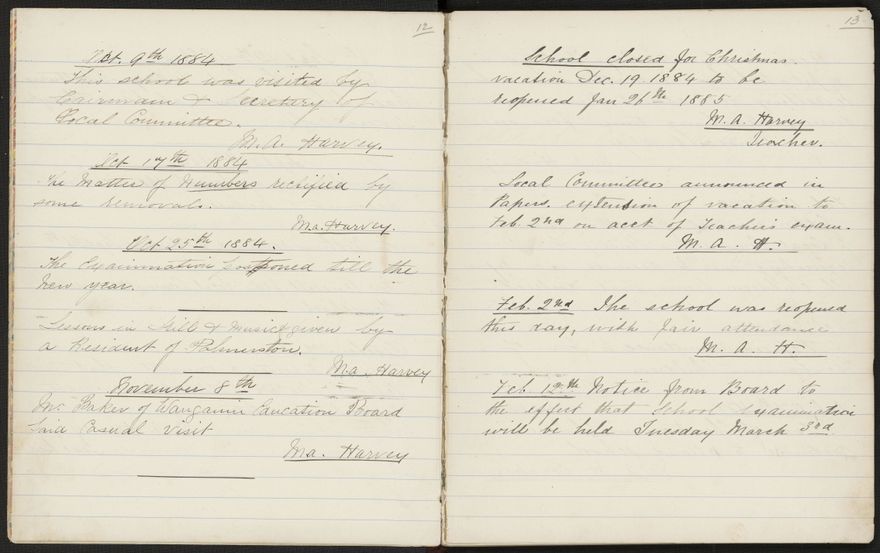 12
Oct. 9th 1884
This school was visited by
Cairemain & Secretary of
Local Committee.
M. A. Harvey.
Oct 17th 1884
The Matter of Numbers rectified by
some removals.
M.a. Harvey.
Oct 25th 1884.
The Examination Postponed till the
New year.
Lessons in Drill & Music given by
a Resident of Palmerston.
M.a. Harvey
November 8th
Mr. Baker of Wanganui Education Board
Paid Casual Visit
M.a. Harvey
13
School closed for Christmas
vacation Dec. 19 1884 to be
reopened Jan 26th 1885
M. A. Harvey
Teacher.
Local Committee announced in
Papers extension of vacation to
Feb. 2nd on acct of Teacher's exam.
M. A. H.
Feb. 2nd The school was reopened
this day, with fair attendance
M. A. H.
Feb 12th Notice from Board to
the effect that School Examination
will be held Tuesday March 3rd